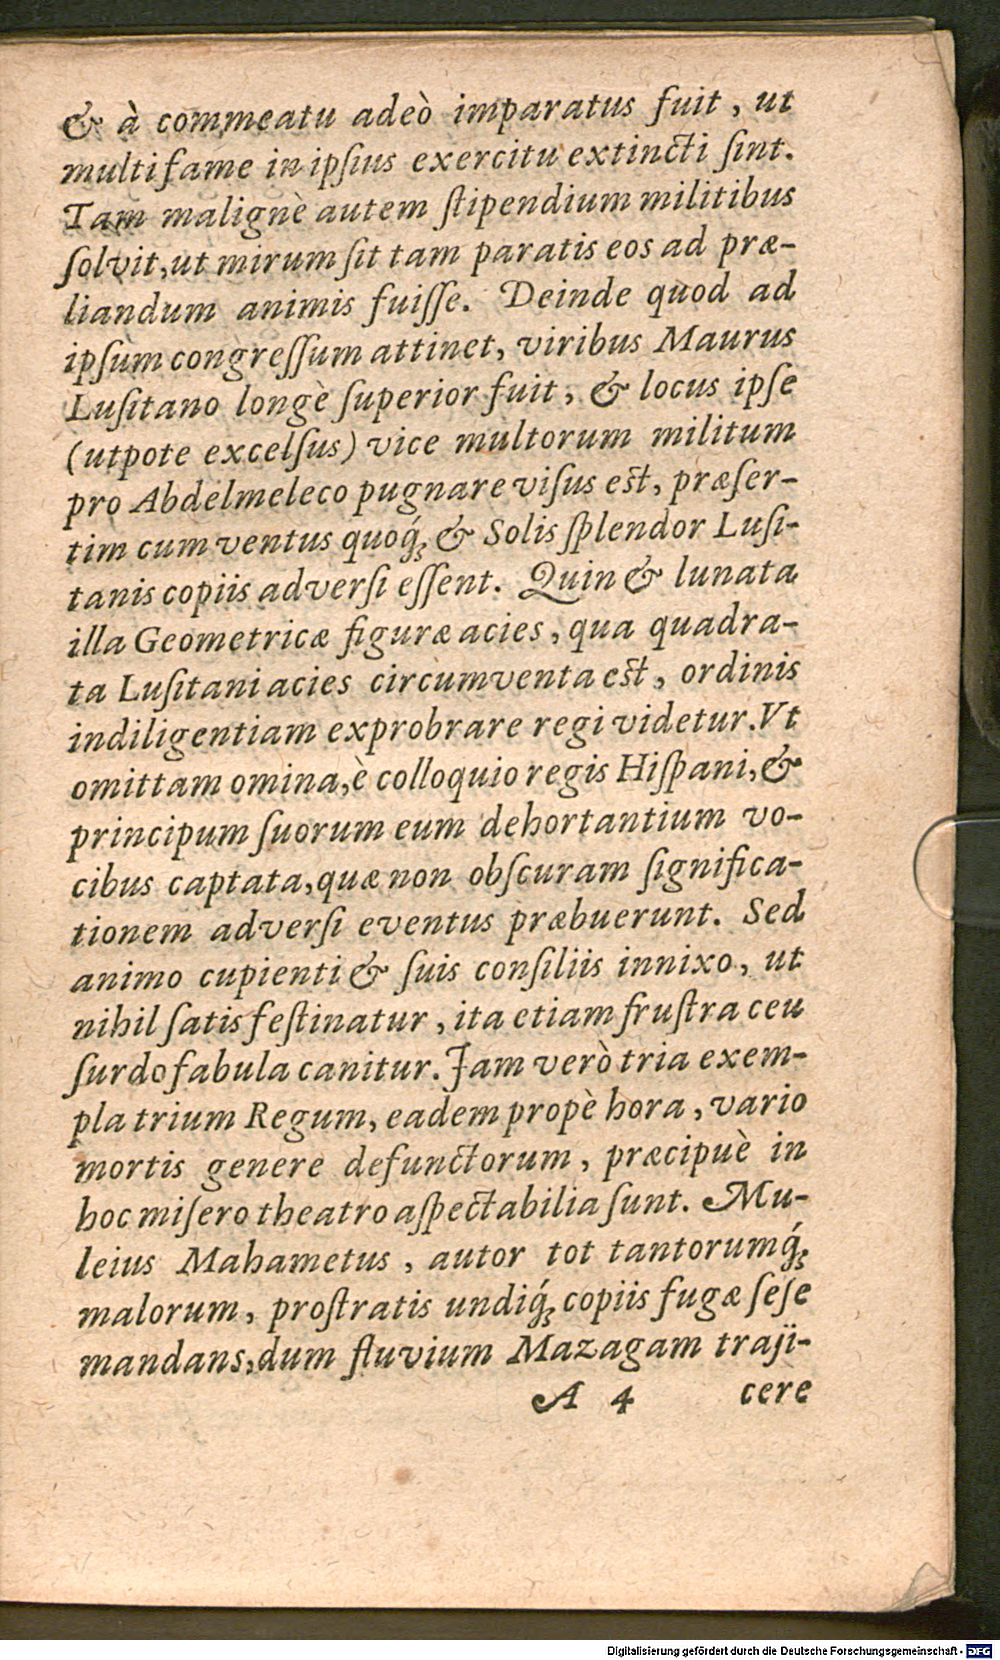 & à commeatu adeò imparatus fuit, ut
multi fame in ipſius exercitu extincti ſint.
Tam malignè autem ſtipendium militibus
ſolvit, ut mirum ſit tam paratis eos ad præ-
liandum animis fuiſſe. Deinde quod ad
ipſum congreſſum attinet, viribus Maurus
Luſitano longè ſuperior fuit, & locus ipſe
(utpote excelſus) vice multorum militum
pro Abdelmeleco pugnare viſus est, præſer-
tim cum ventus quoq́; & Solis ſplendor Luſi-
tanis copiis adverſi eſſent. Quin & lunata
illa Geometricæ figuræ acies, qua quadra-
ta Luſitani acies circumventa est, ordinis
indiligentiam exprobrare regi videtur. Vt
omittam omina, è colloquio regis Hiſpani, &
principum ſuorum eum dehortantium vo-
cibus captata, quæ non obſcuram ſignifica-
tionem adverſi eventus præbuerunt. Sed
animo cupienti & ſuis conſiliis innixo, ut
nihil ſatis feſtinatur, ita etiam fruſtra ceu
ſurdo fabula canitur. Jam verò tria exem-
pla trium Regum, eadem propè hora, vario
mortis genere defunctorum, præcipuè in
hoc miſero theatro aſpectabilia ſunt. Mu-
leius Mahametus, autor tot tantorumq́;
malorum, proſtratis undiq́; copiis fugæ ſeſe
mandans, dum fluvium Mazagam traji-
A 4 cere
Digitalisierung gefördert durch die Deutsche Forschungsgemeinschaft - DFG